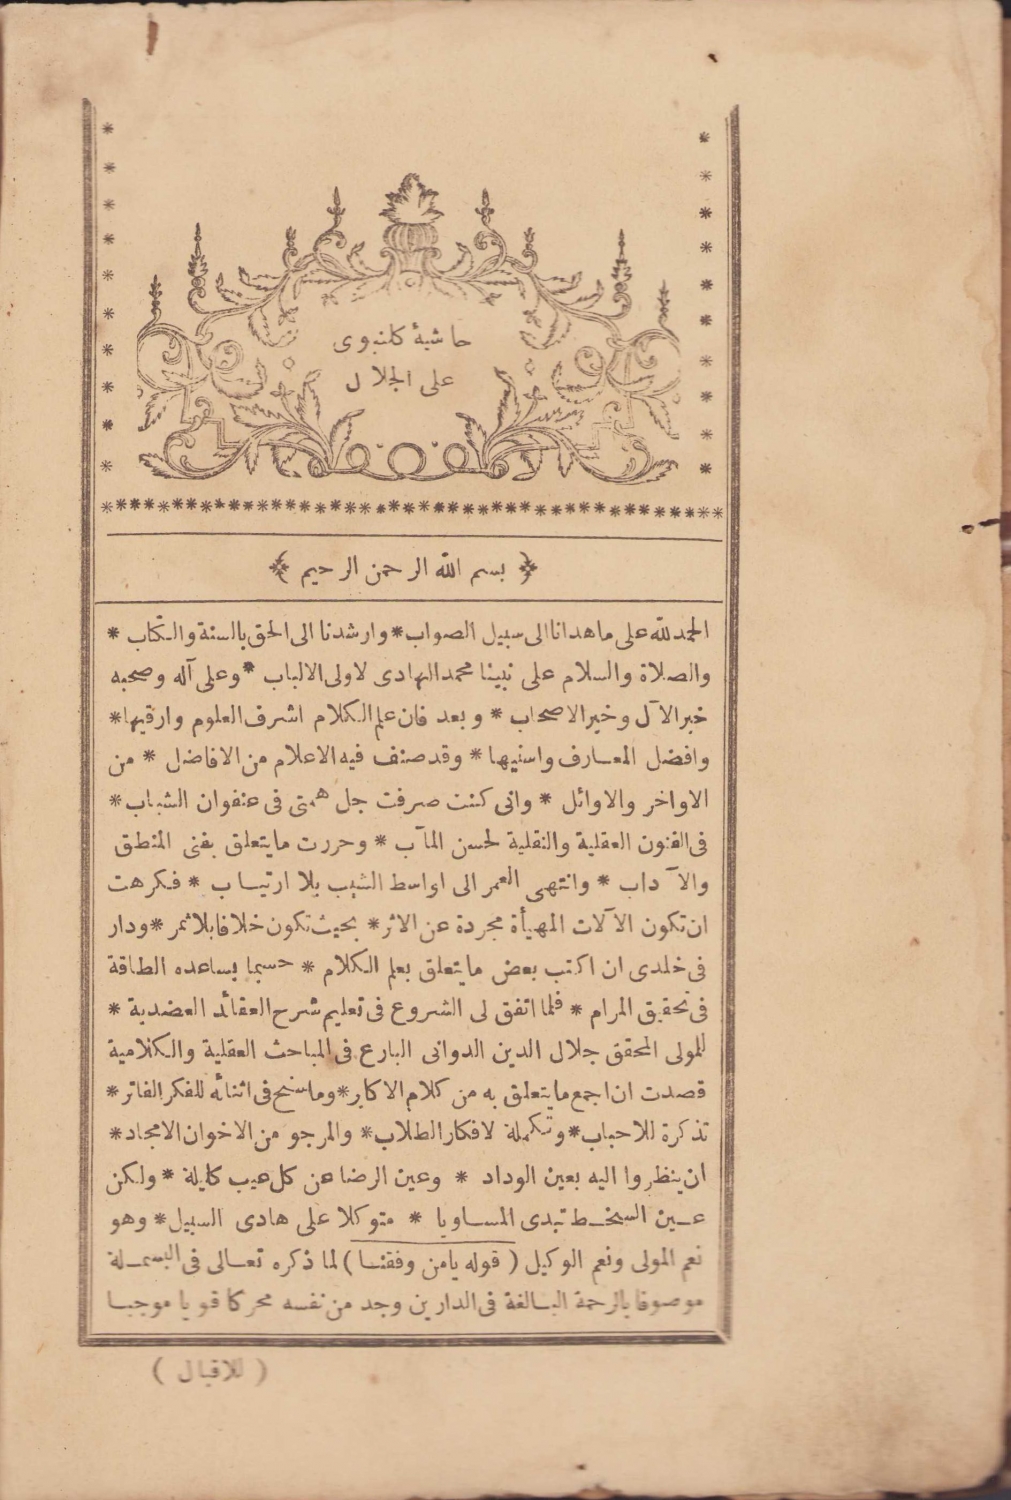 حاشية كلنبوى
على الجلال
﴿ بسم الله الرحمن الرحيم ﴾
الحمد لله على ما هدانا الى سبيل الصواب * وارشدنا الى الحق بالسنة والكتاب *
والصلاة والسلام على نبينا محمد الهادى لاولى الالباب * وعلى آله وصحبه
خير الآل وخير الاصحاب * وبعد فان علم الكلام اشرف العلوم وارقيها *
وافضل المعارف واسنيها * وقد صنف فيه الاعلام من الافاضل * من
الاواخر والاوائل * وانى كنت صرفت جل همتى فى عنفوان الشباب *
فى الفنون العقلية والنقلية لحسن المآب * وحررت ما يتعلق بفنى المنطق
والآداب * وانتهى العمر الى اواسط الشيب بلا ارتياب * فكرهت
ان تكون الآلات المهيأة مجردة عن الاثر * بحيث تكون خلافا بلا ثمر * ودار
فى خلدى ان اكتب بعض ما يتعلق بعلم الكلام * حسبما يساعده الطاقة
فى تحقيق المرام * فلما اتفق لى الشروع فى تعليم شرح العقائد العضدية *
للمولى المحقق جلال الدين الدوانى البارع فى المباحث العقلية والكلامية
قصدت ان اجمع ما يتعلق به من كلام الاكابر * وما سنح فى اثنائه للفكر الفاتر *
تذكرة للاحباب * وتكملة لافكار الطلاب * والمرجو من الاخوان الامجاد *
ان ينظروا اليه بعين الوداد * وعين الرضا عن كل عيب كليلة * ولكن
عين السخط تبدى المساويا * متوكلا على هادى السبيل * وهو
نعم المولى ونعم الوكيل ( قوله يامن وفقنا ) لما ذكره تعالى فى البسملة
موصوفا بالرحمة البالغة فى الدارين وجد من نفسه محركا قويا موجبا
( للاقبال )